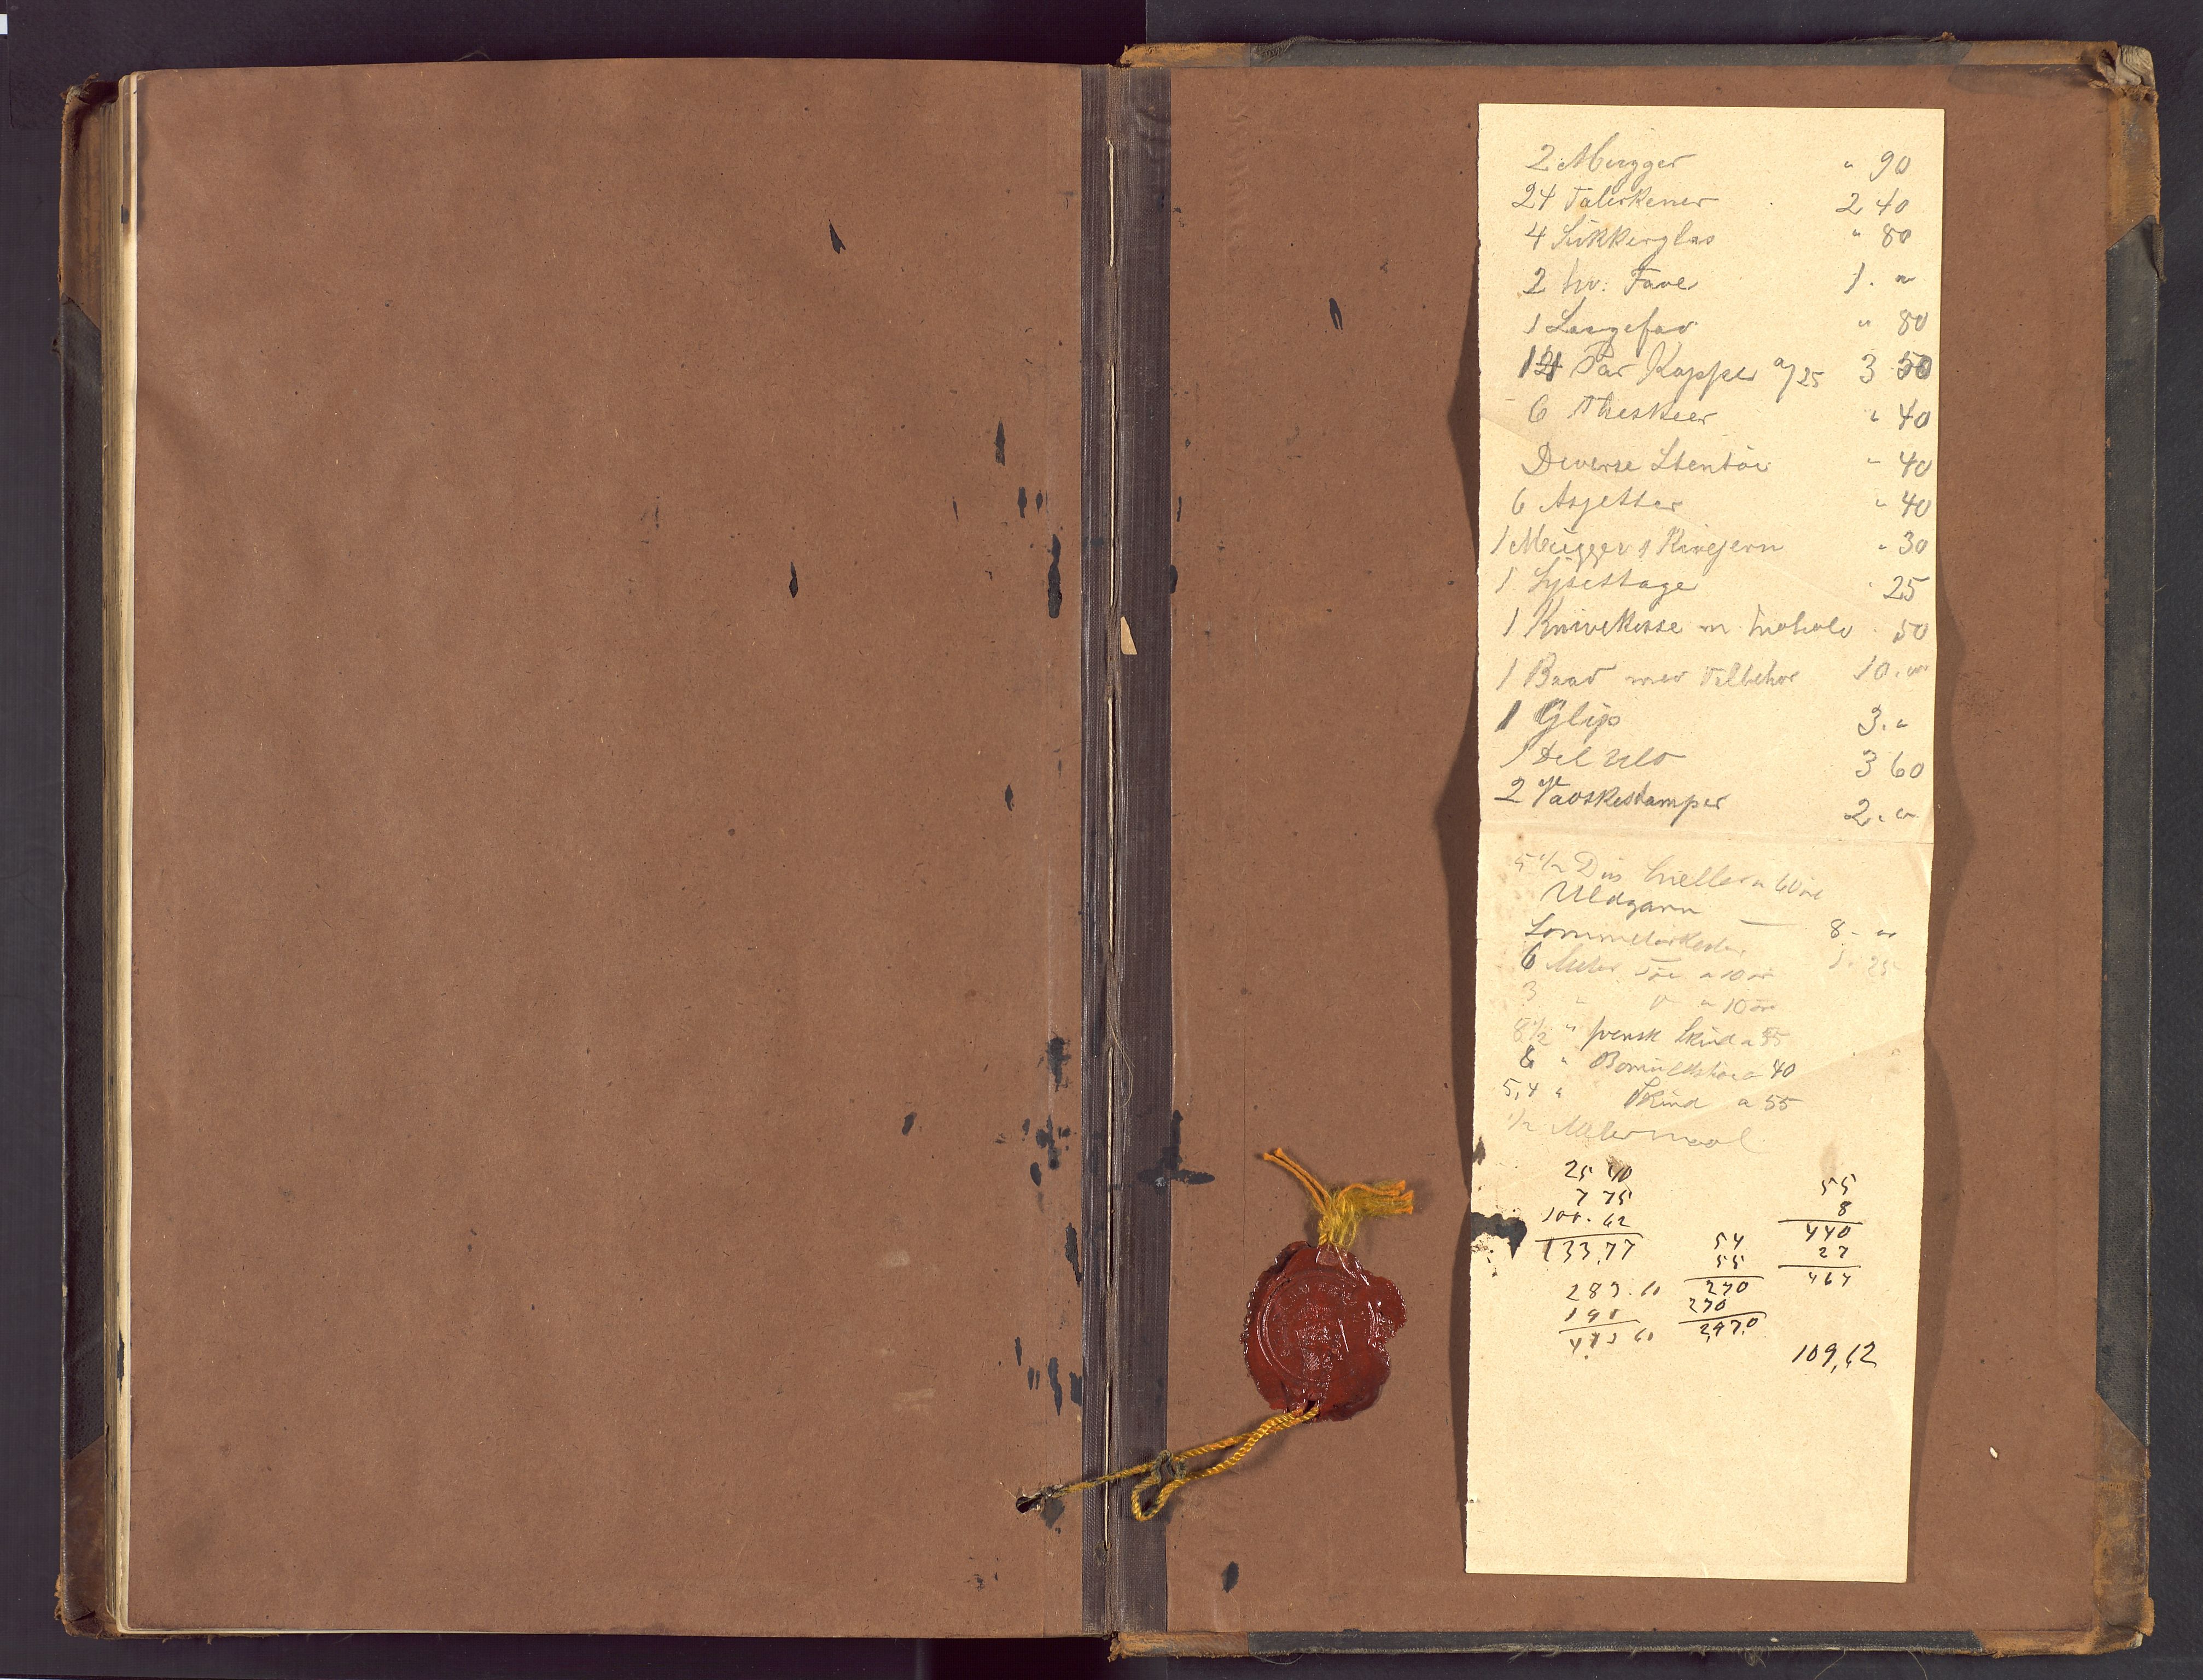 2 Mugger " 90
24 Talerkener 2 40
4 Sukkerglas " 80
2 hv: Fave 1. "
1 Langefav " 80
Par Kopper a/25 3 50
6 Theskeer " 40
Diverse Stentøi " 40
6 Asjetter " 40
1 Mugger 1 Rivejern " 30
1 Lysestage " 25
1 Knivkasse m Inhold 50
1 Baad med Tilbehør 10. "
1 Glip 3. "
1 Del Uld 3 60
2 Vadskestamper 2. "
5 1/2 Dus a 60 øre
Uldgarn — 8 - "
Lommetørkeder 1. 25
6 Meter Tøi a 10 ør
3 " " a 10 øre
8 1/2 " svensk Skind a 55
" Bomuldstøi a 40
5,4 " Skind a 55
1/2 Metermaal
25 40
7 75
100. 62
133,77
283. 60
190
473 60
54
55
270
270
2970
55
8
440
27
467
109,62